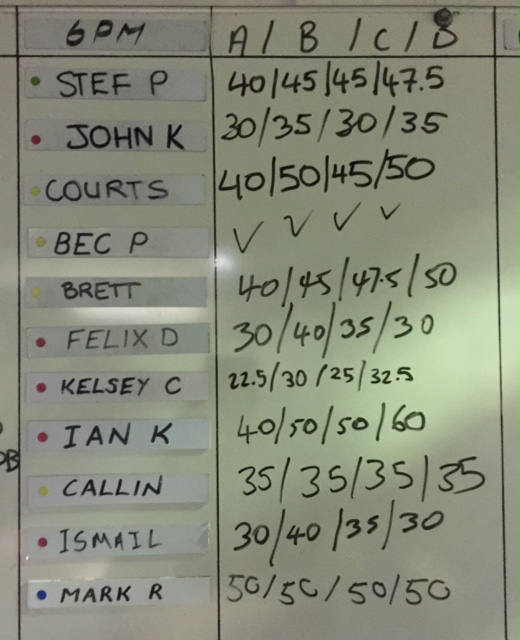 6PM A / B / C / D
STEF P 40/45/45/47.5
JOHN K 30/35/30/35
COURTS 40/50/45/50
BEC P ✓ ✓ ✓ ✓
BRETT 40/45/47.5/50
FELIX D 30/40/35/30
KELSEY C 22.5/30/25/32.5
IAN K 40/50/50/60
CALLIN 35/35/35/35
ISMAIL 30/40/35/30
MARK R 50/50/50/50